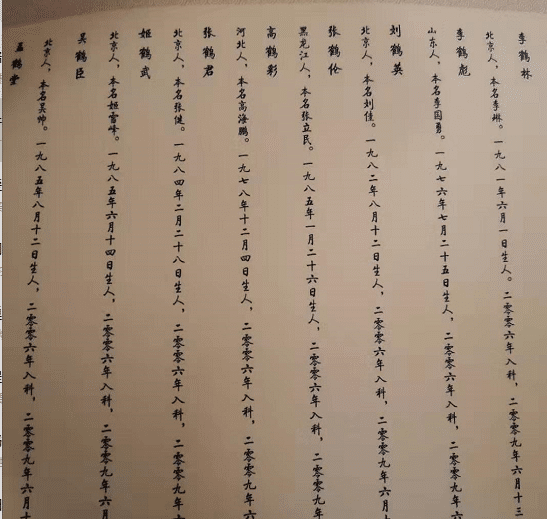 李鹤林
北京人，本名李琳。一九八一年六月一日生人。二零零六年入科，二零零九年六月十三
李鹤彪
山东人，本名李国勇。一九七六年七月二十五日生人，二零零六年入科，二零零九年六
刘鹤英
北京人，本名刘佳。一九八二年八月十二日生人，二零零六年入科，二零零九年六月十
张鹤伦
黑龙江人，本名张立民。一九八五年一月二十六日生人，二零零六年入科，二零零九
高鹤彩
河北人，本名高海鹏。一九七八年十二月四日生人，二零零六年入科，二零零九年六月
张鹤君
北京人，本名张健。一九八四年二月二十八日生人，二零零六年入科，二零零九年
姬鹤武
北京人，本名姬雪峰。一九八五年六月十四日生人，二零零六年入科，二零零九年六月
吴鹤臣
北京人，本名吴帅。一九八五年八月十二日生人，二零零六年入科，二零零九年六月十
孟鹤堂